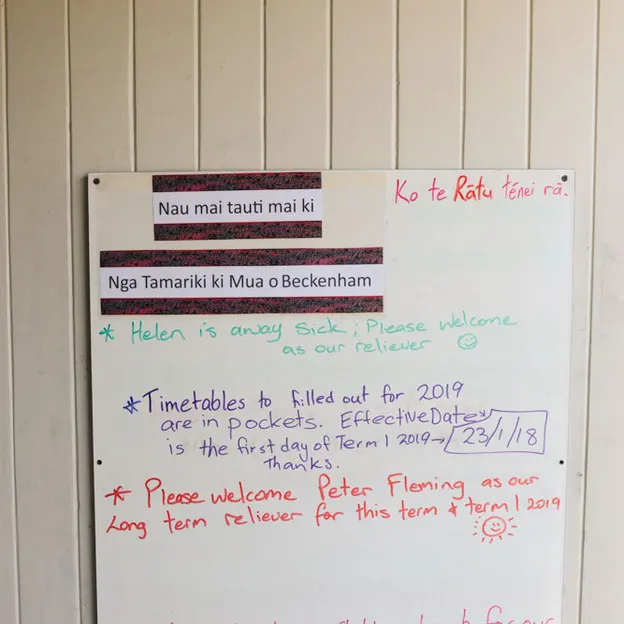 Nau mai tauti mai ki
Ko te Rātu tēnei rā.
Nga Tamariki ki Mua o Beckenham
* Helen is away sick; Please welcome
as our reliever
* Timetables to filled out for 2019
are in pockets. Effective Date*
is the first day of Term 1 2019→ 23/1/18
Thanks.
* Please welcome Peter Fleming as our
Long term reliever for this term & term 1 2019
for our